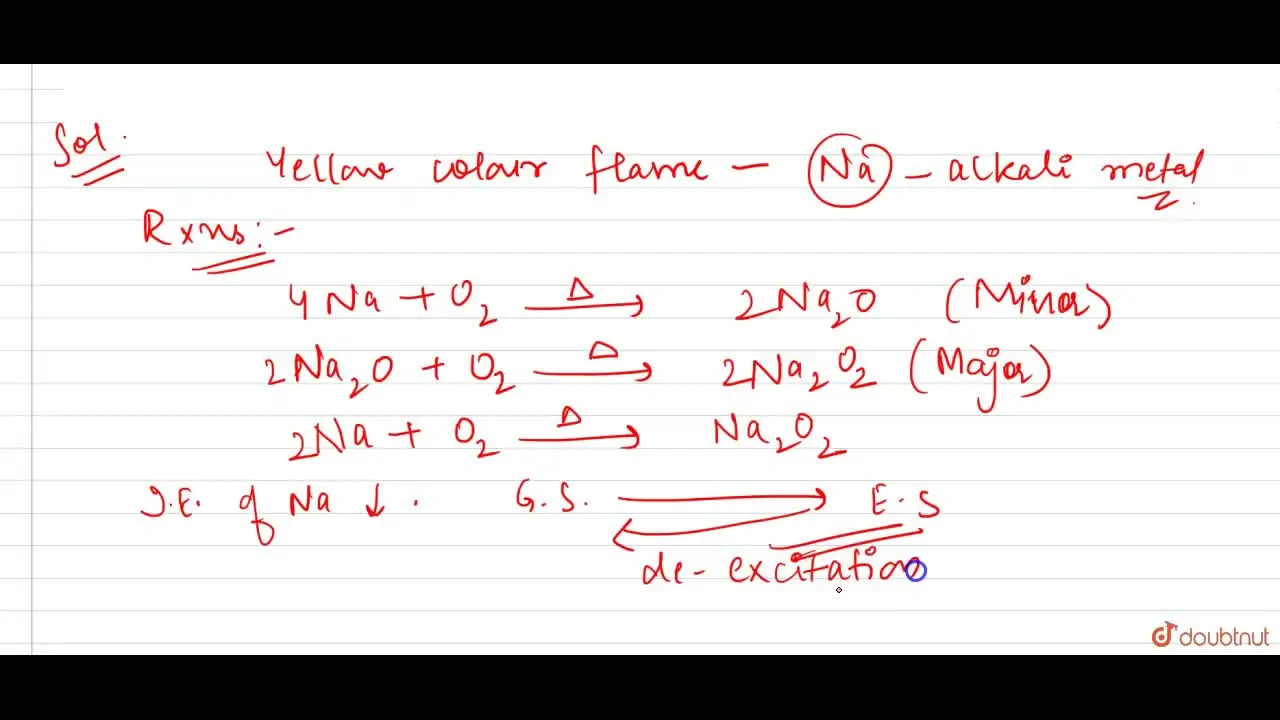 Sol.
Yellow colour flame – Na – alkali metal
Rxns:-
4Na + O2 —Δ→ 2Na2O (Minor)
2Na2O + O2 —Δ→ 2Na2O2 (Major)
2Na + O2 —Δ→ Na2O2
I.E. of Na ↓. G.S. → E.S
de-excitation
doubtnut